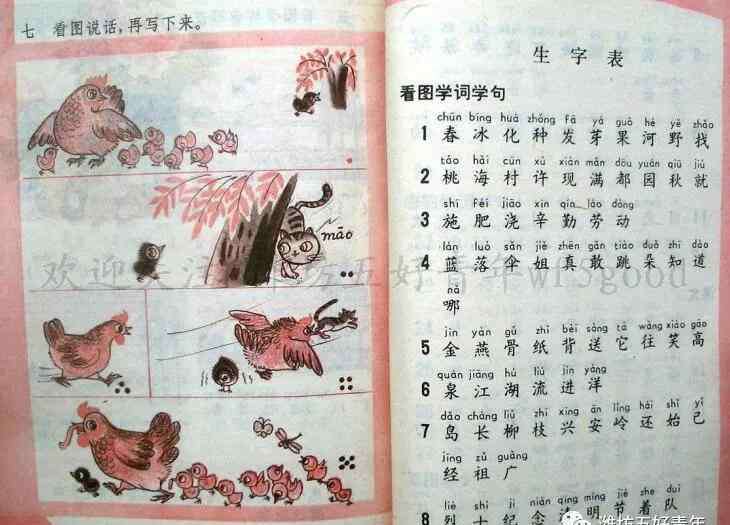 七 看图说话，再写下来。
māo
欢迎关注潍坊五好青年wf5good
生字表
看图学词学句
chūn bīng huà zhǒng fā yá guǒ hé yě zhǎo
1 春 冰 化 种 发 芽 果 河 野 找
táo hǎi cūn xǔ xiàn mǎn dōu yuán qiū jiù
2 桃 海 村 许 现 满 都 园 秋 就
shī féi jiāo xīn qín láo dòng
3 施 肥 浇 辛 勤 劳 动
lán luò sǎn jiě zhēn gǎn tiào duǒ zhī dào
4 蓝 落 伞 姐 真 敢 跳 朵 知 道
nǎ
哪
jīn yàn gǔ zhǐ bèi sòng tā wǎng xiào gāo
5 金 燕 骨 纸 背 送 它 往 笑 高
quán jiāng hú liú jìn yáng
6 泉 江 湖 流 进 洋
dǎo cháng liǔ zhī xīng ān lǐng hái shǐ yǐ
7 岛 长 柳 枝 兴 安 岭 还 始 已
jīng zǔ guǎng
经 祖 广
liè shì jì niàn qīng míng jié zhe duì
8 烈 士 纪 念 清 明 节 着 队
潍坊五好青年